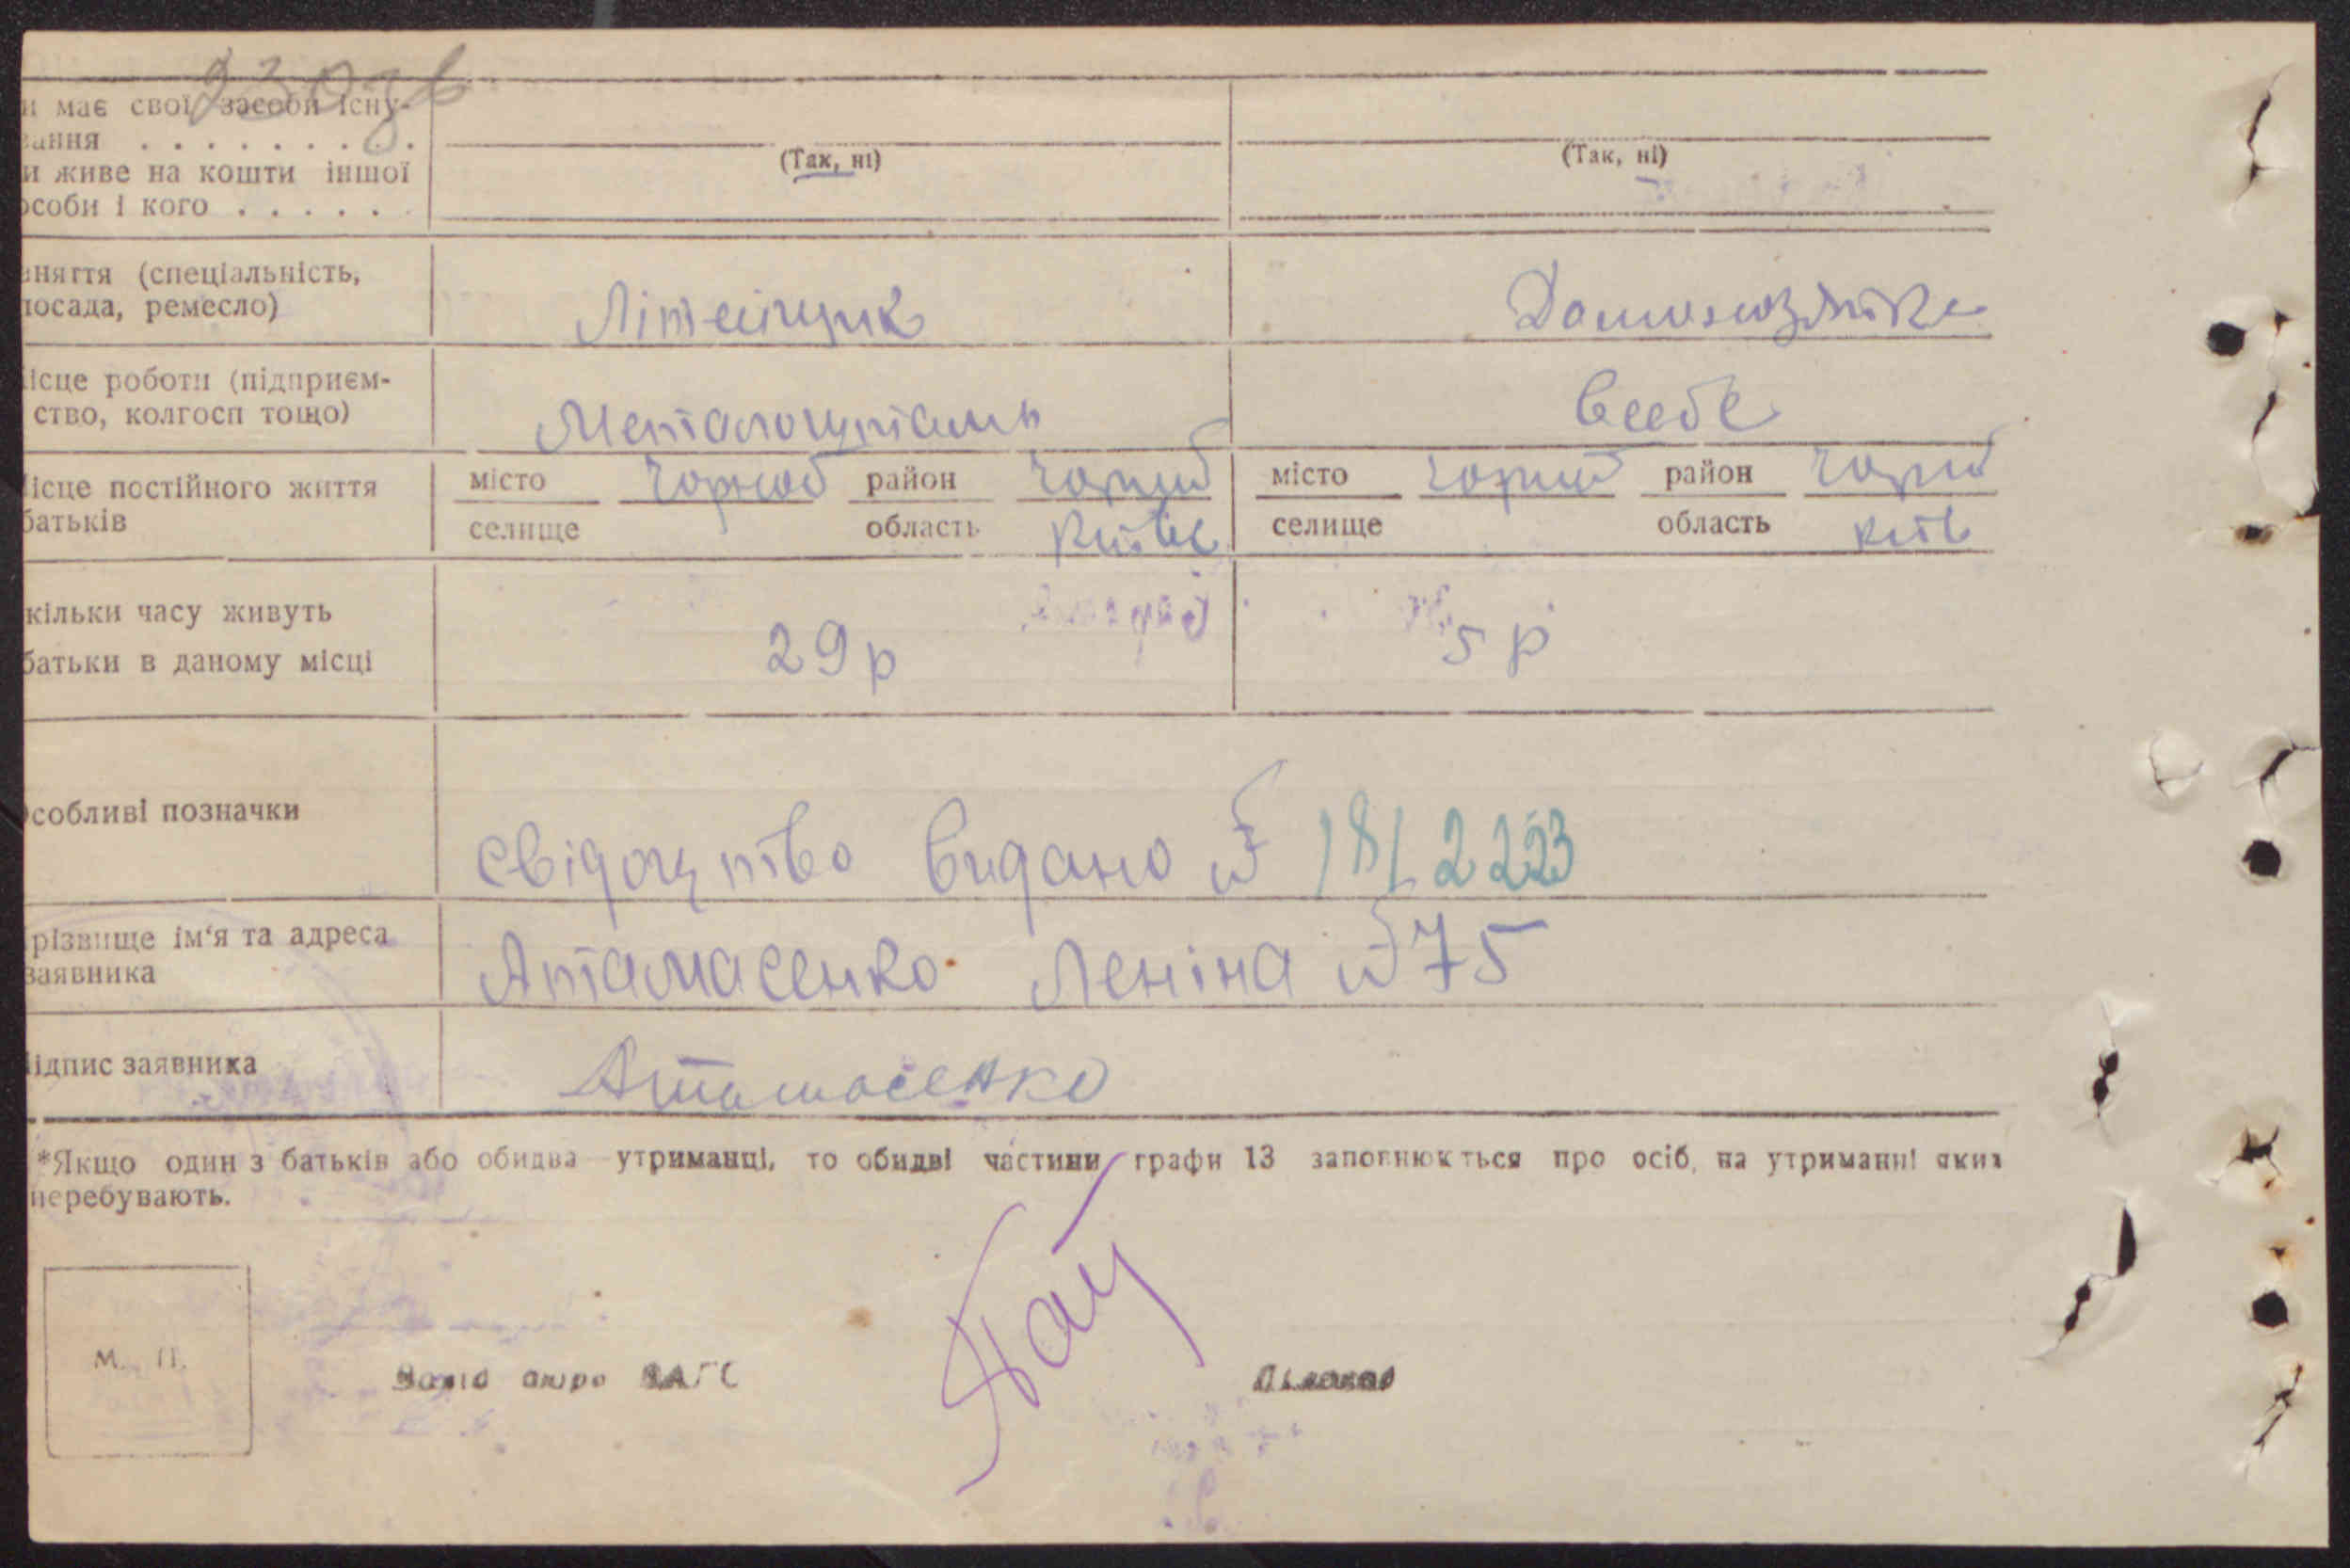 и має свої засоби існу-
вання . . . . . . . .
(Так, ні)
(Так, ні)
и живе на кошти іншої
особи і кого . . . . . .
аняття (спеціальність,
посада, ремесло)
Літейщик
Домохозяйка
ісце роботи (підприєм-
ство, колгосп тощо)
Металоштамп
всебе
ісце постійного життя
батьків
місто Чорноб район Чорноб
місто Чорноб район Чорноб
селище область Київс
селище область Київ
кільки часу живуть
батьки в даному місці
29 р
5 р
собливі позначки
свідоцтво видано № 181 2223
різвище ім'я та адреса
заявника
Атамасенко Леніна № 75
ідпис заявника
Атамасенко
*Якщо один з батьків або обидва утриманці, то обидві частини графи 13 заповнюються про осіб, на утриманні яких
перебувають.
М. П.
бюро ЗАГС